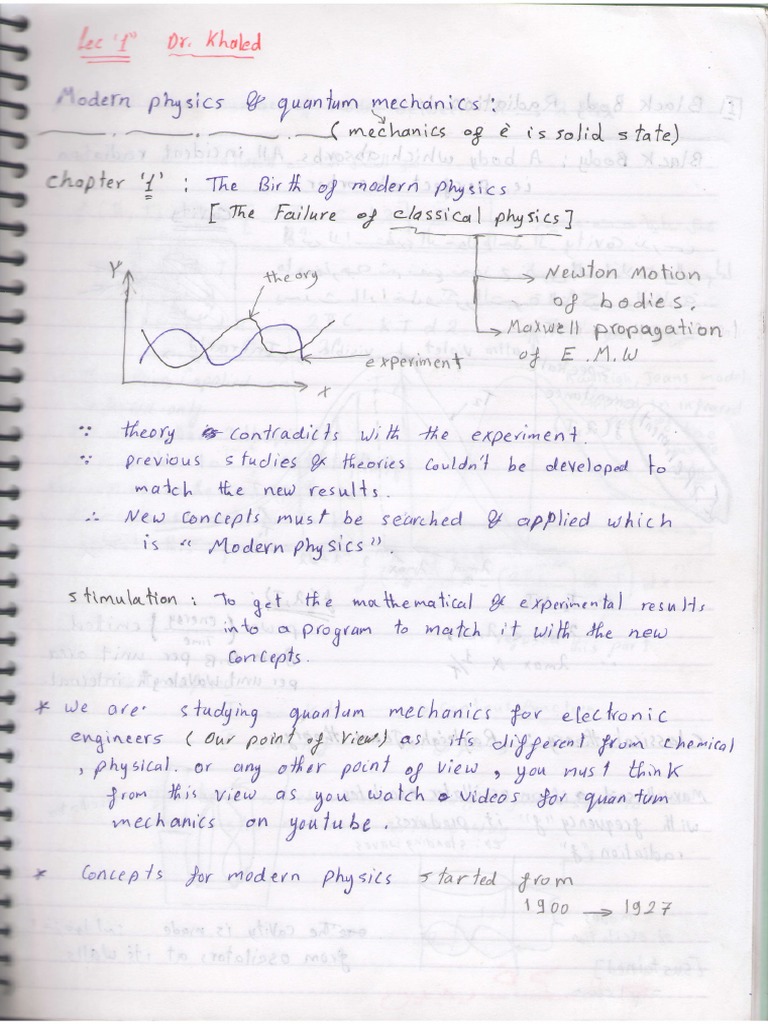 Lec "1" Dr. Khaled
Modern physics & quantum mechanics:
(mechanics of e⁻ is solid state)
chapter '1' : The Birth of modern physics
[ The Failure of classical physics]
Y
theory
→ Newton Motion
of bodies.
→ Maxwell propagation
of E.M.W
experiment
x
∵ theory contradicts with the experiment.
∵ previous studies & theories couldn't be developed to
match the new results.
∴ New concepts must be searched & applied which
is " Modern physics".
stimulation : To get the mathematical & experimental results
into a program to match it with the new
concepts.
* we are studying quantum mechanics for electronic
engineers (Our point of view) as it's different from chemical
, physical. or any other point of view, you must think
from this view as you watch videos for quantum
mechanics on youtube.
* Concepts for modern physics started from
1900 → 1927